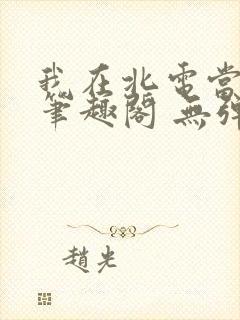 我在北電當
筆趣閣 無彈
趙光